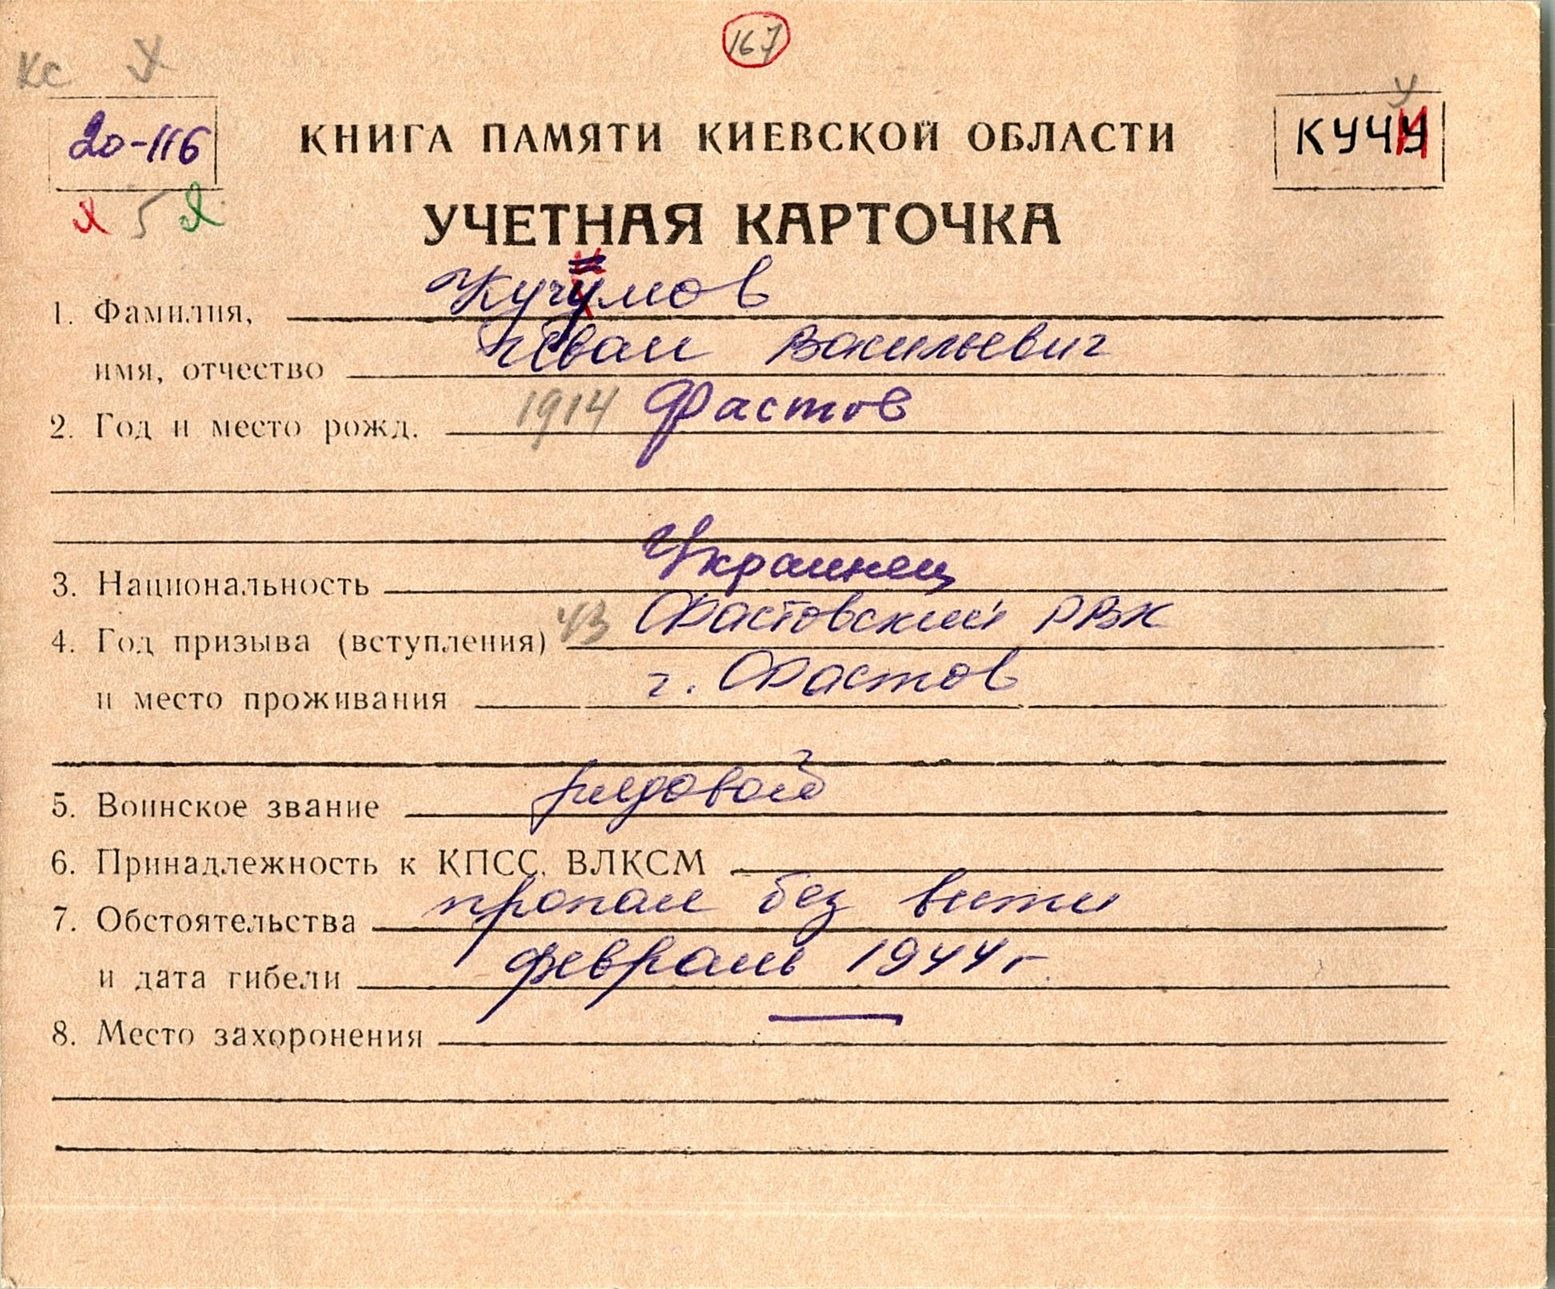 167
Кс У
20-116 КНИГА ПАМЯТИ КИЕВСКОЙ ОБЛАСТИ КУЧУ
5
УЧЕТНАЯ КАРТОЧКА
1. Фамилия, Кучумов
имя, отчество Иван Васильевич
2. Год и место рожд. 1914 Фастов
3. Национальность Украинец
4. Год призыва (вступления) 43 Фастовский РВК
и место проживания г. Фастов
5. Воинское звание рядовой
6. Принадлежность к КПСС, ВЛКСМ
7. Обстоятельства пропал без вести
и дата гибели февраль 1944 г.
8. Место захоронения —